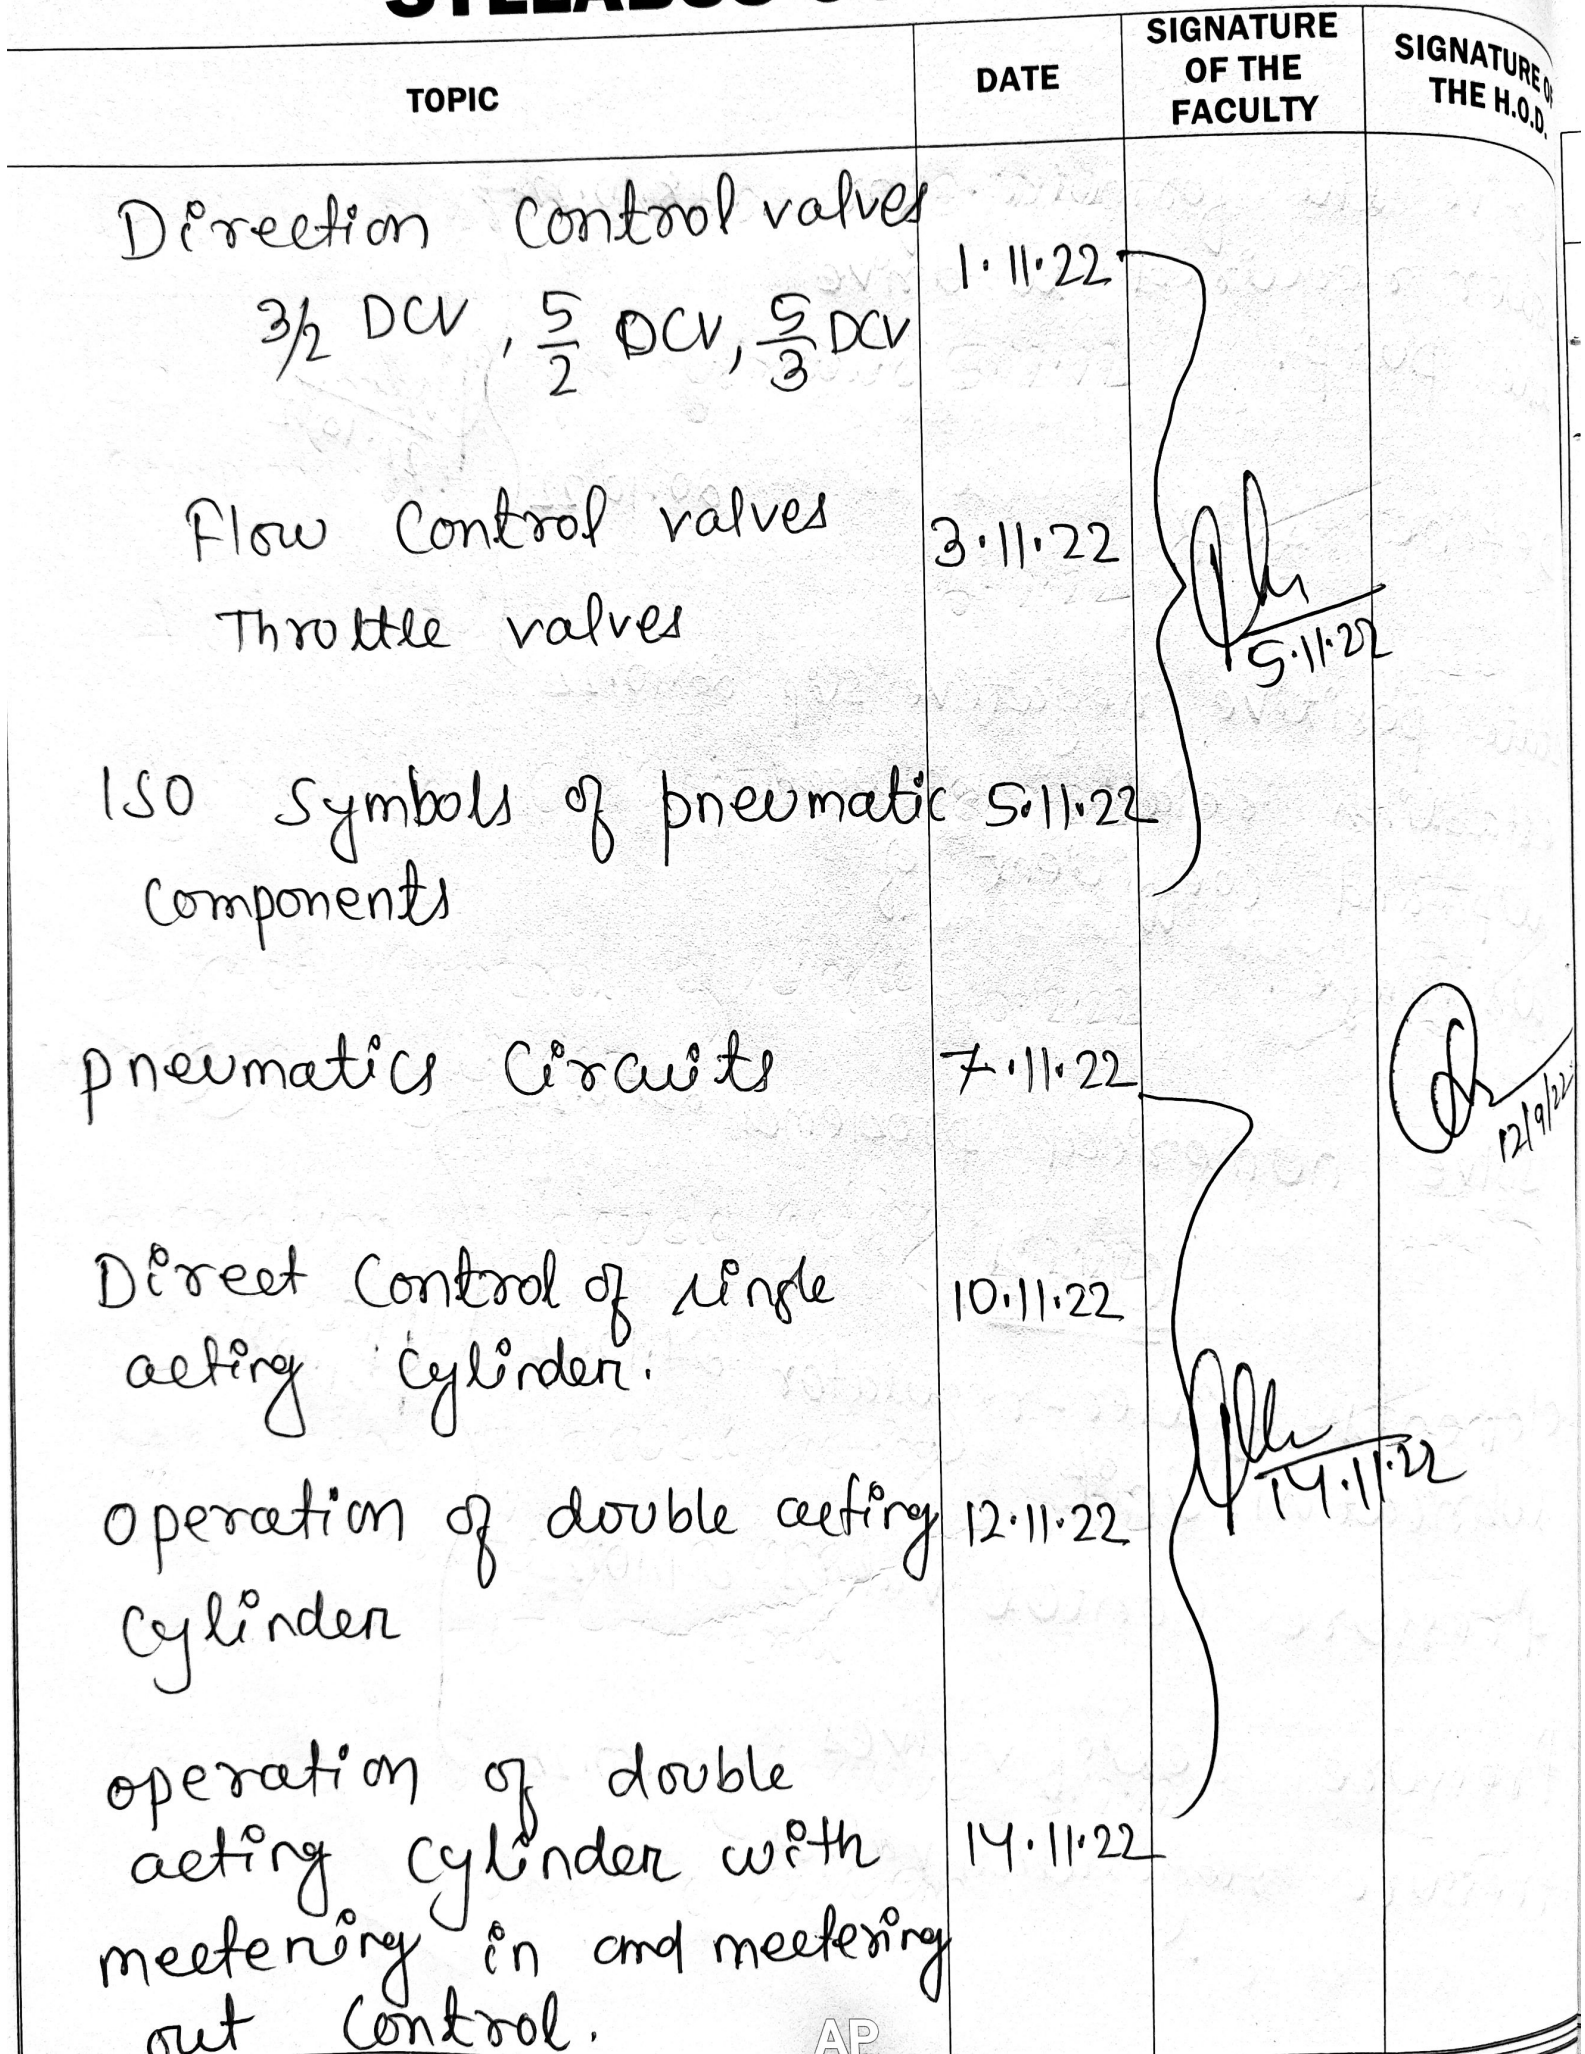 TOPIC
DATE
SIGNATURE
OF THE
FACULTY
SIGNATURE OF
THE H.O.D.
Direction Control valves
1.11.22
3/2 DCV, 5/2 DCV, 5/3 DCV
Flow Control valves
3.11.22
Throttle valves
5.11.22
ISO Symbols of pneumatic
5.11.22
Components
pneumatics Circuits
7.11.22
12/9/22
Direct Control of single
10.11.22
acting Cylinder.
14.11.22
operation of double acting
12.11.22
Cylinder
operation of double
acting cylinder with
14.11.22
meetering in and meetering
out Control.
AP